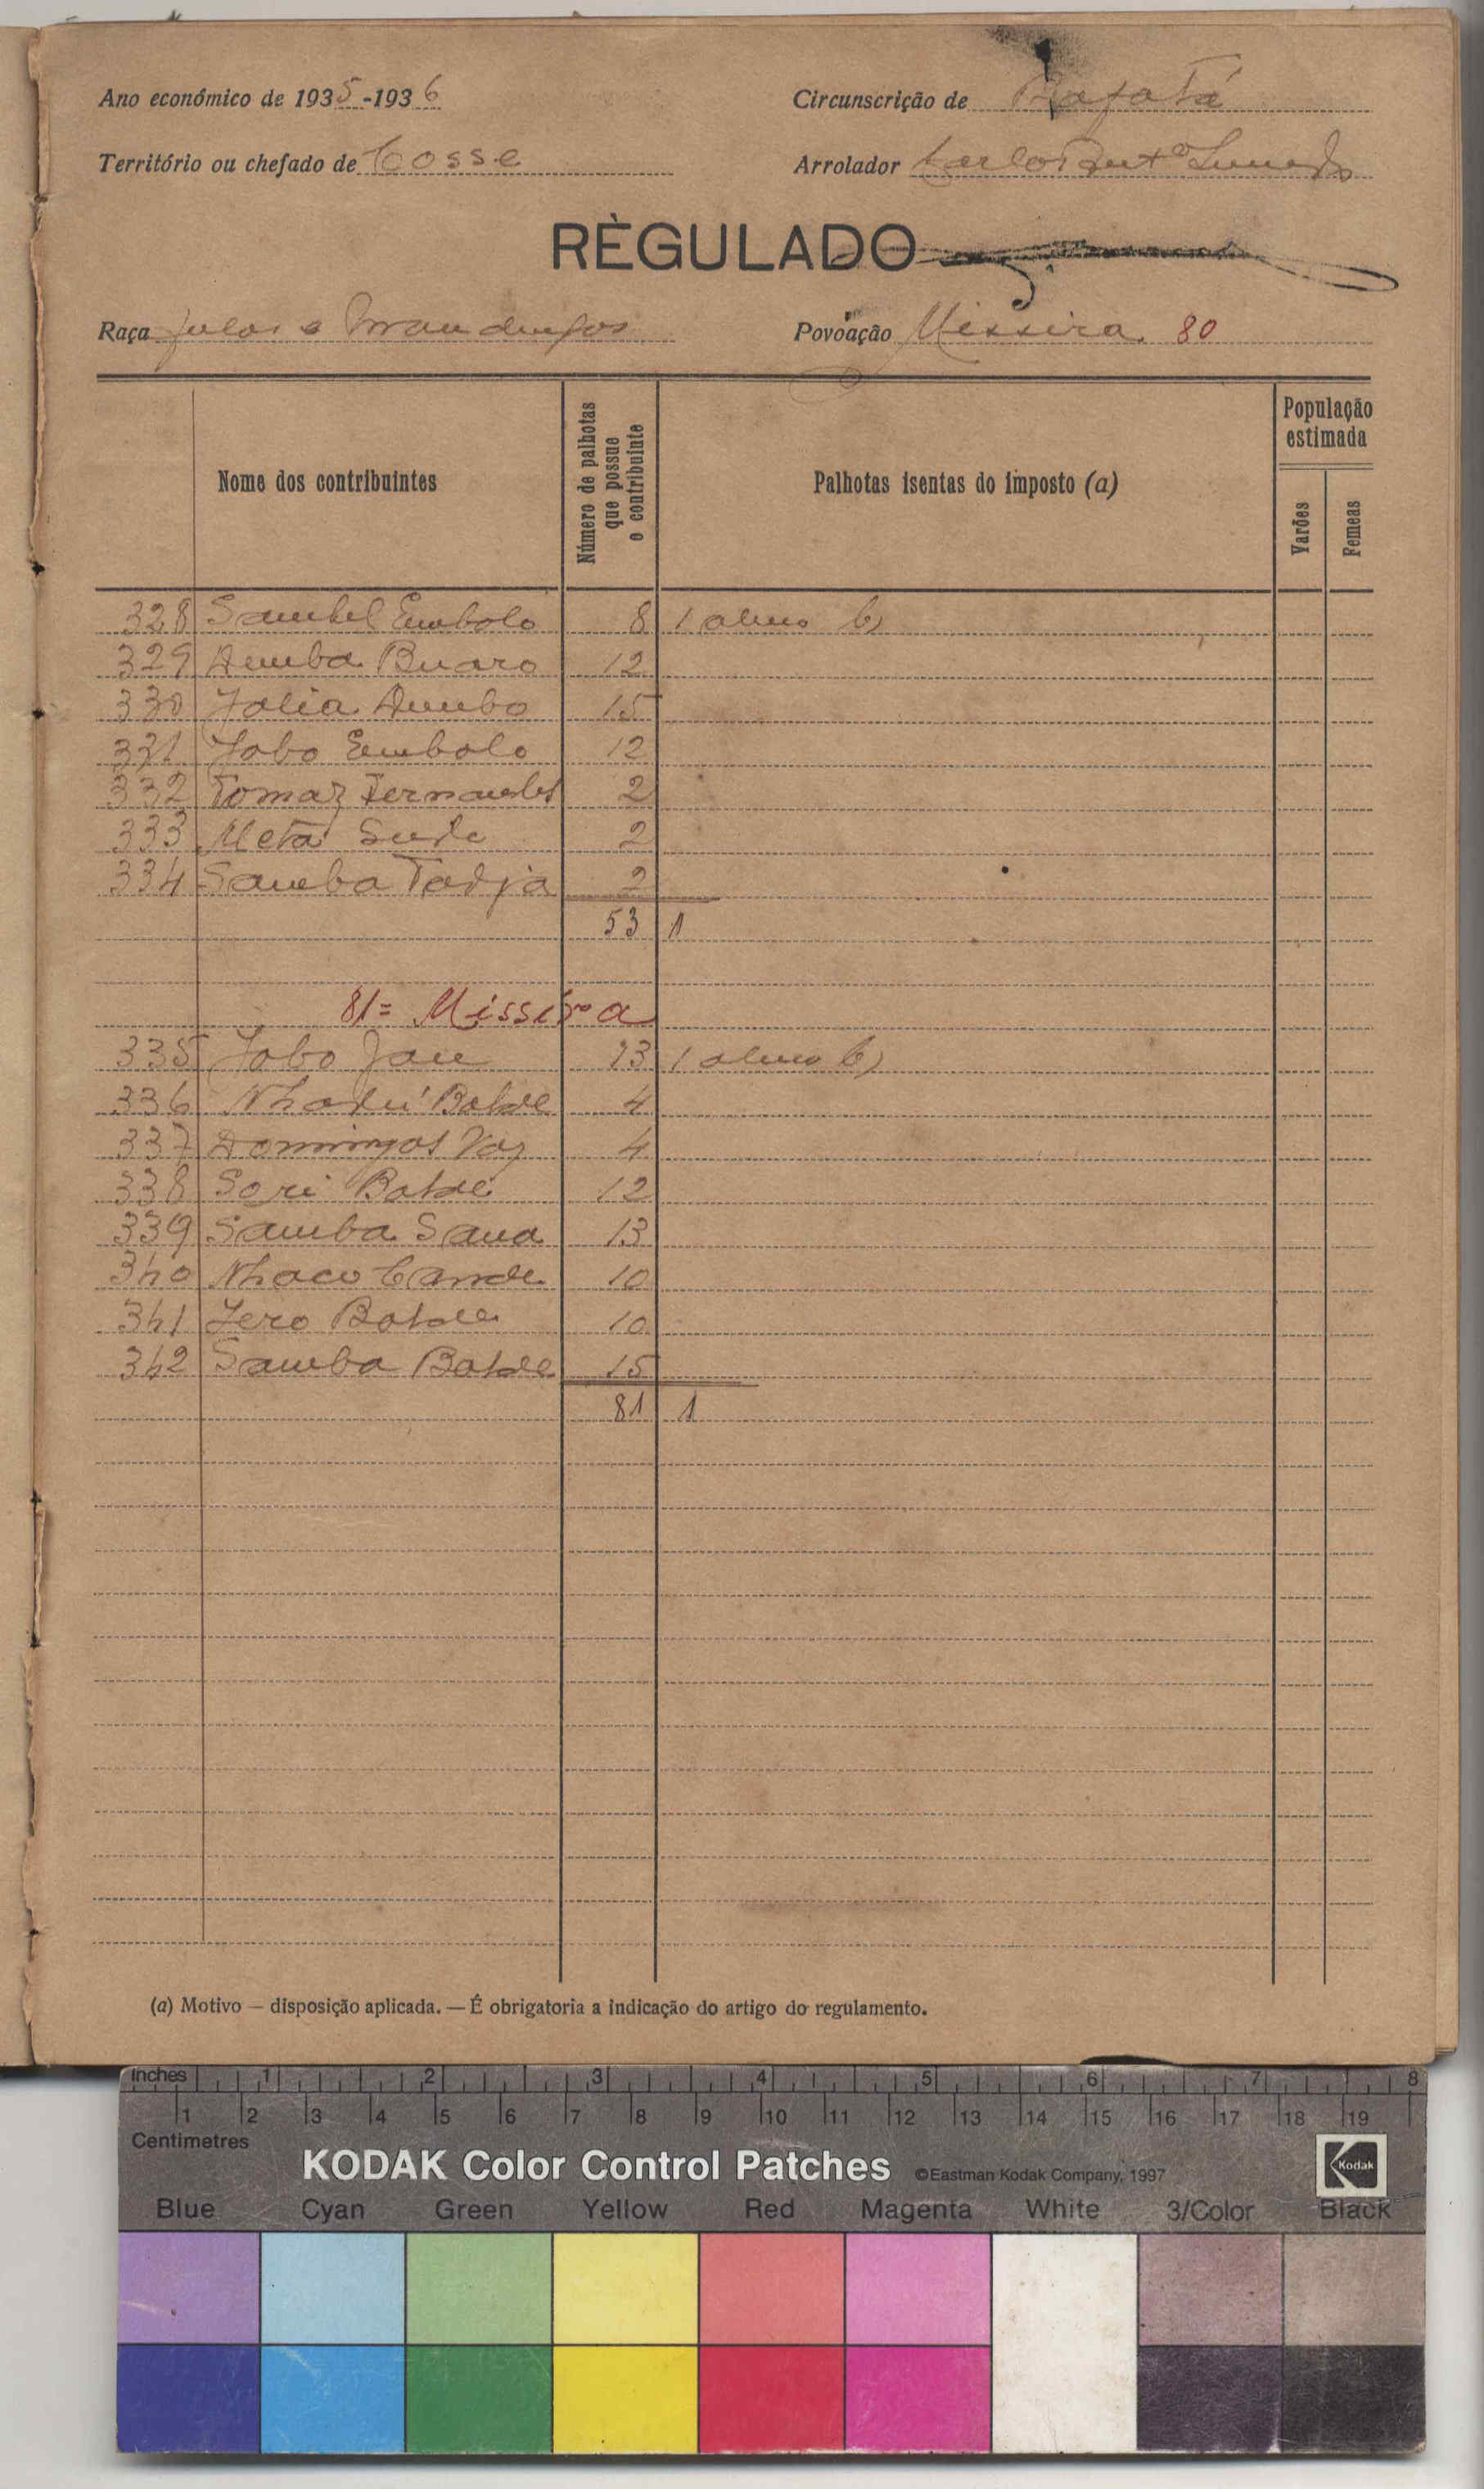 Ano económico de 1935-1936
Circunscrição de Bafatá
Território ou chefado de Cosse
Arrolador Carlos Antº
RÈGULADO
Raça Fulas e Mandingas
Povoação Missira 80
Nome dos contribuintes
Número de palhotas que possue o contribuinte
Palhotas isentas do imposto (a)
População estimada
Varões
Femeas
328 Sambel Embalo 8 1 b)
329 Demba Buaro 12
330 Jalia Dembo 15
331 Jobo Embalo 12
332 Tomaz Fernandes 2
333 Meta 2
334 Samba Tadja 2
53 1
81= Missira
335 Jobo Jau 13 1 b)
336 Balde 4
337 Domingos Vaz 4
338 Sori Balde 12
339 Samba Sana 13
340 Nhaco Cande 10
341 Jero Balde 10
342 Samba Balde 15
81 1
(a) Motivo — disposição aplicada. — É obrigatoria a indicação do artigo do regulamento.
Inches 1 2 3 4 5 6 7 8
1 2 3 4 5 6 7 8 9 10 11 12 13 14 15 16 17 18 19
Centimetres
KODAK Color Control Patches ©Eastman Kodak Company, 1997 Kodak
Blue Cyan Green Yellow Red Magenta White 3/Color Black